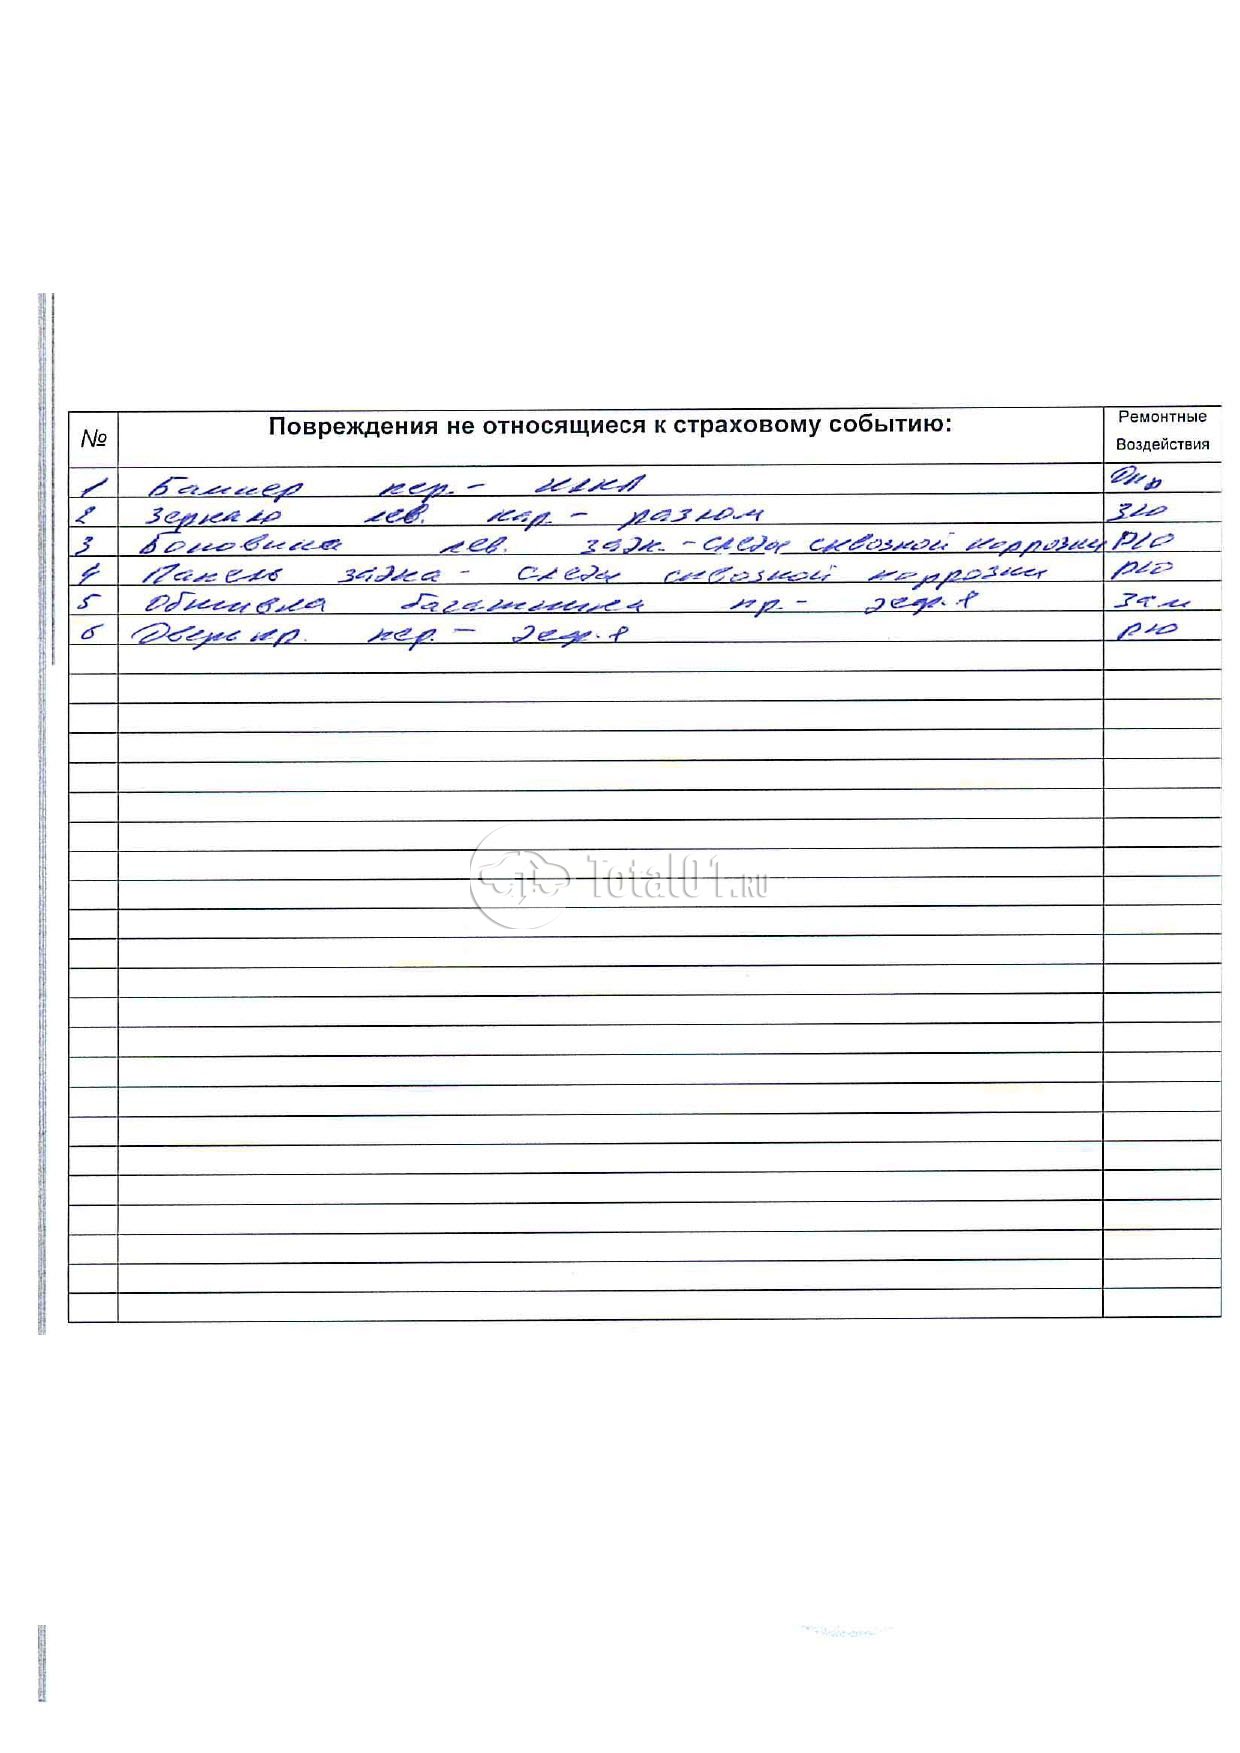 № Повреждения не относящиеся к страховому событию: Ремонтные
Воздействия
1 Бампер пер. -
2 Зеркало лев. нар. - разлом З/О
3 Боковина лев. задн. - следы сквозной коррозии Р/О
4 Панель задка - следы сквозной коррозии Р/О
5 Обшивка багажника пр. - деф. я Зам
6 Дверь пр. пер. - деф. я Р/О
Total01.RU